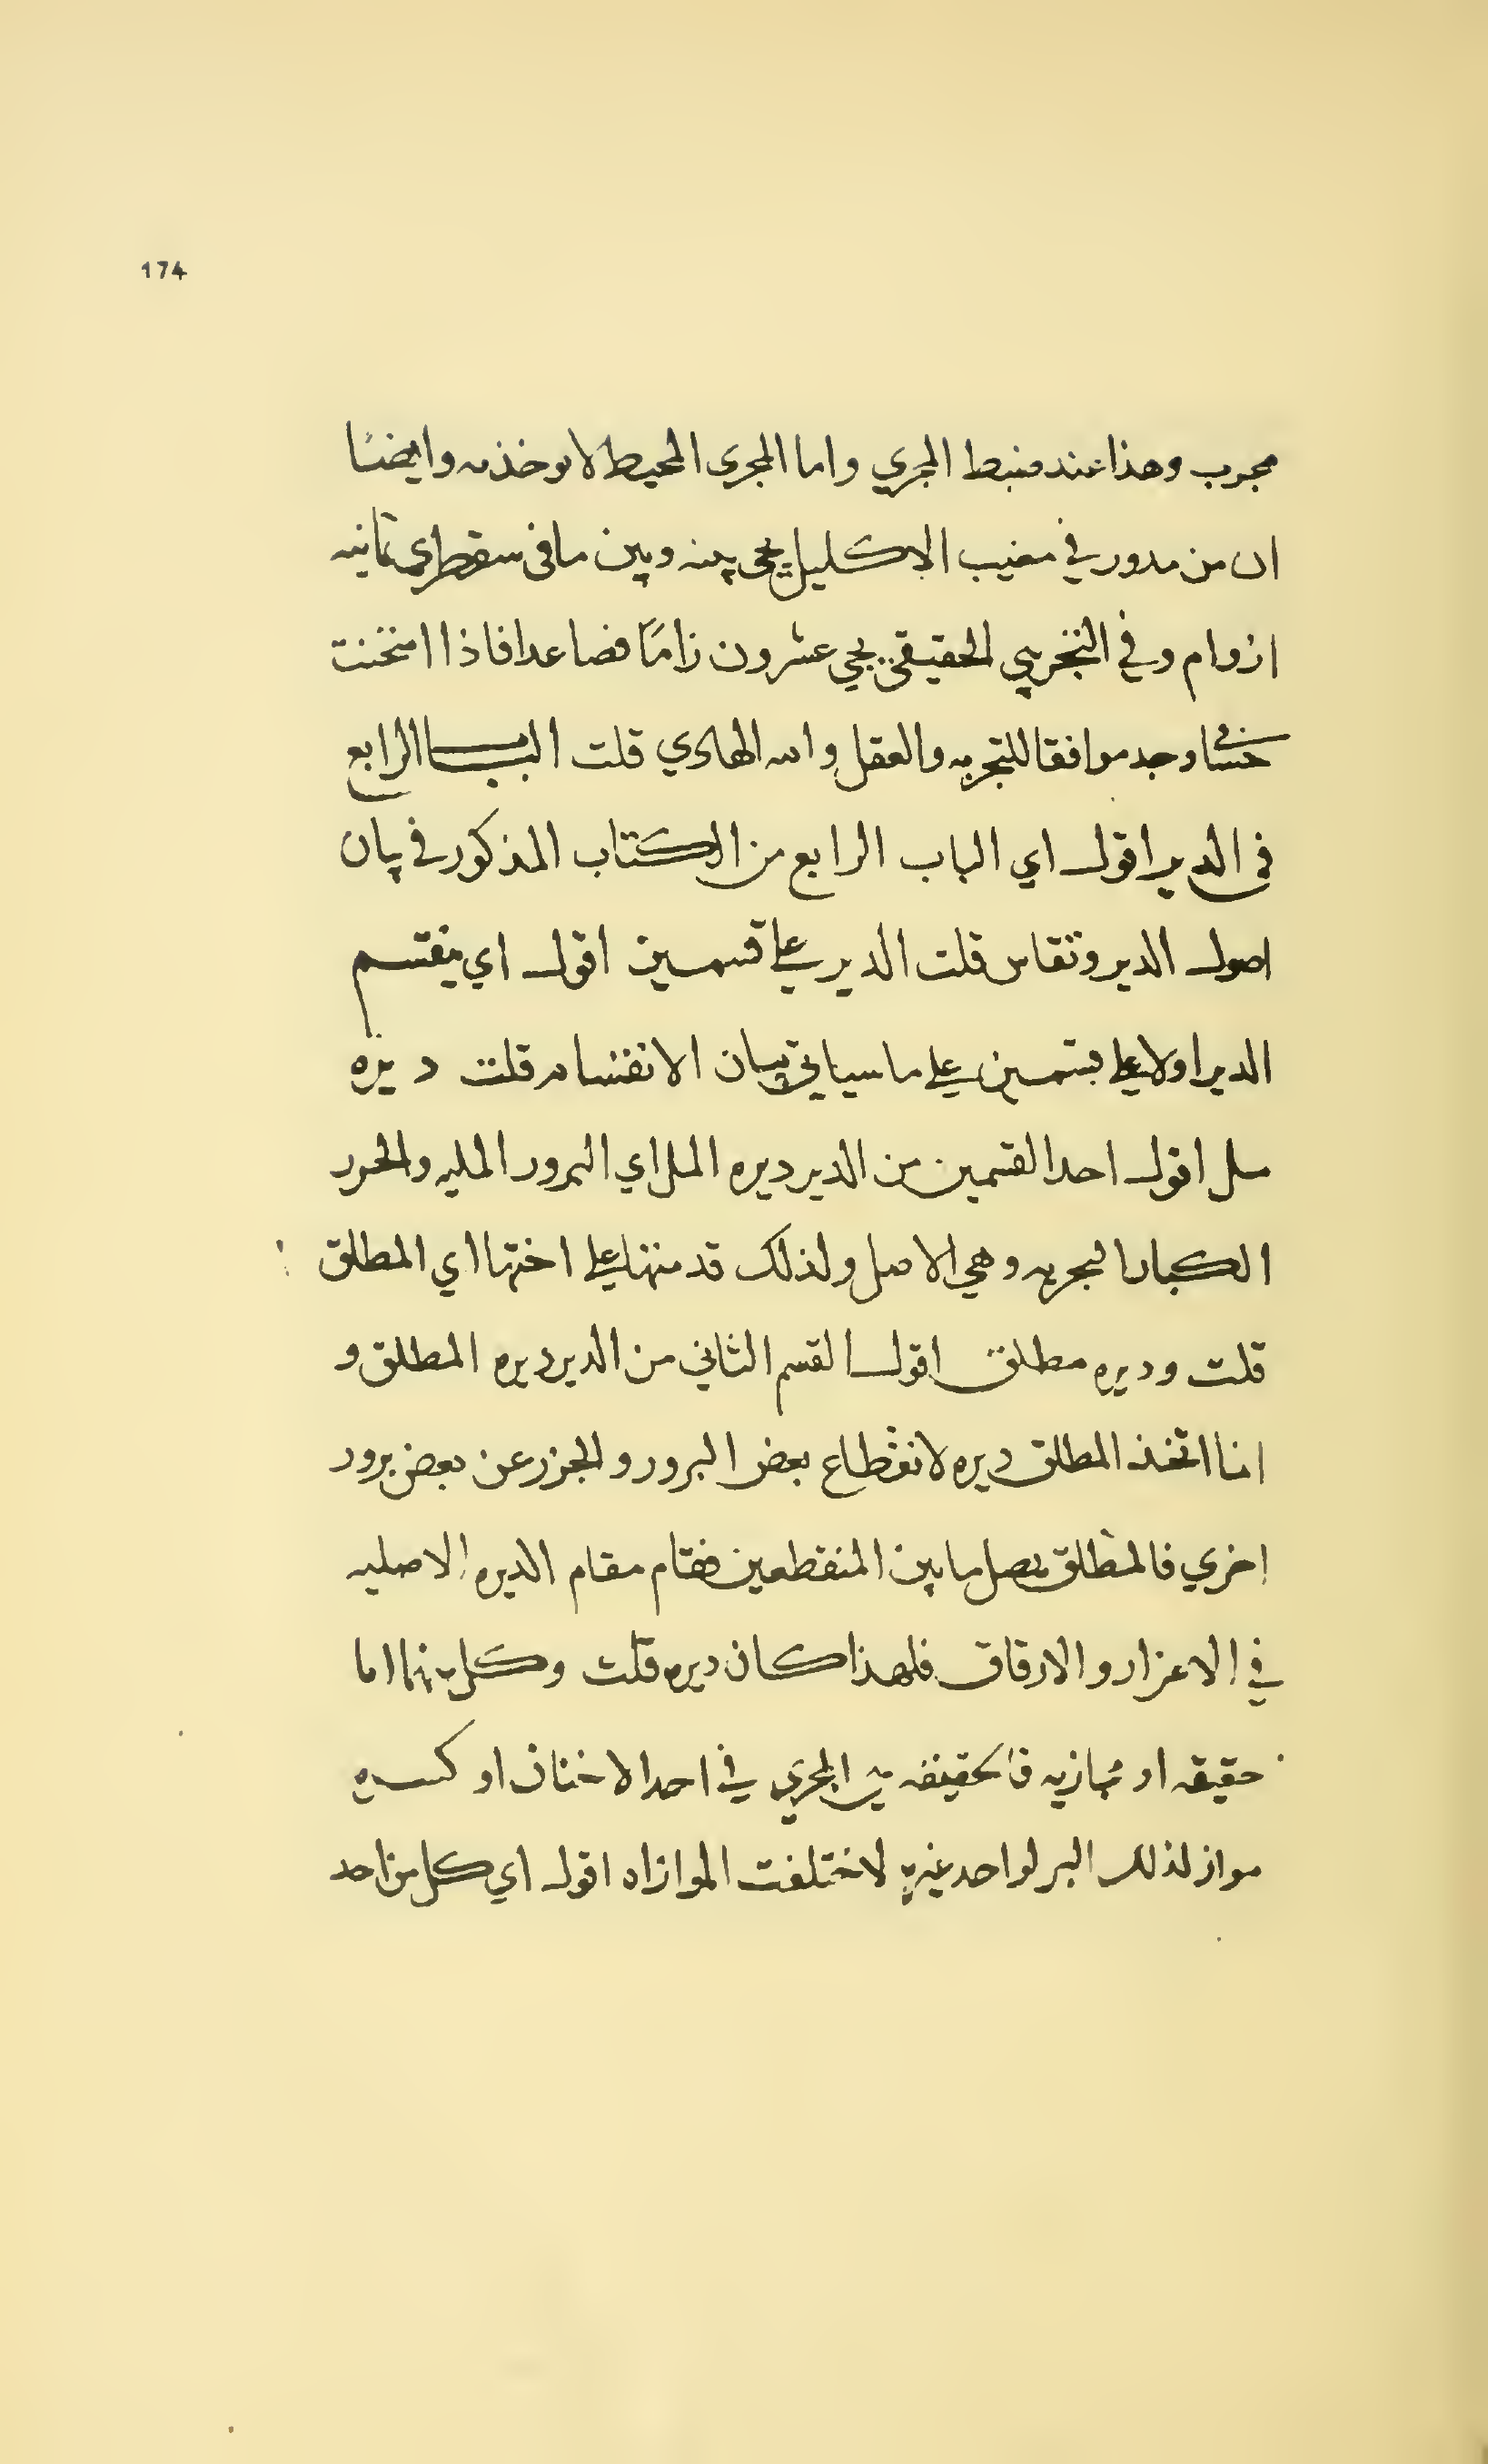 174
مجرب وهذا عند ضبط المجري واما المجرى المحيط لا يوخذ به وايضا
ان من مدور في مغيب الاكليل يجى بينه وبين مافى سقطرى ثمانيه
ازوام وفي التخريبي الحقيقي يجي عشرون زاما فصاعدا فاذا امتحنت
وجد موافقا للتجربه والعقل والله الهادي قلت الباب الرابع
فى الدير اقول اي الباب الرابع من الكتاب المذكور في بيان
اصول الدير وتقاس قلت الدير علي قسمين اقول اي ينقسم
الدير اولا علي قسمين علي ما سياتي بيان الانقسام قلت ديره
مل اقول احد القسمين من الدير ديره المل اي البرور المليه والخور
الكبار البحريه وهي الاصل ولذلك قدمتها علي اختها اي المطلق
قلت وديره مطلق اقول القسم الثاني من الدير ديره المطلق و
انما اتخذ المطلق ديره لانقطاع بعض البرور والجزر عن بعض برور
اخري فالمطلق يصل ما بين المنقطعين فقام مقام الديره الاصليه
في الاعزار والارقاق فلهذا كان ديره قلت وكل منهما اما
حقيقه او مجازيه فالحقيقه المجري في احد الاخنان او كسره
مواز لذلك البر لواحد غيره لاختلفت الموازاه اقول اي كل من احد